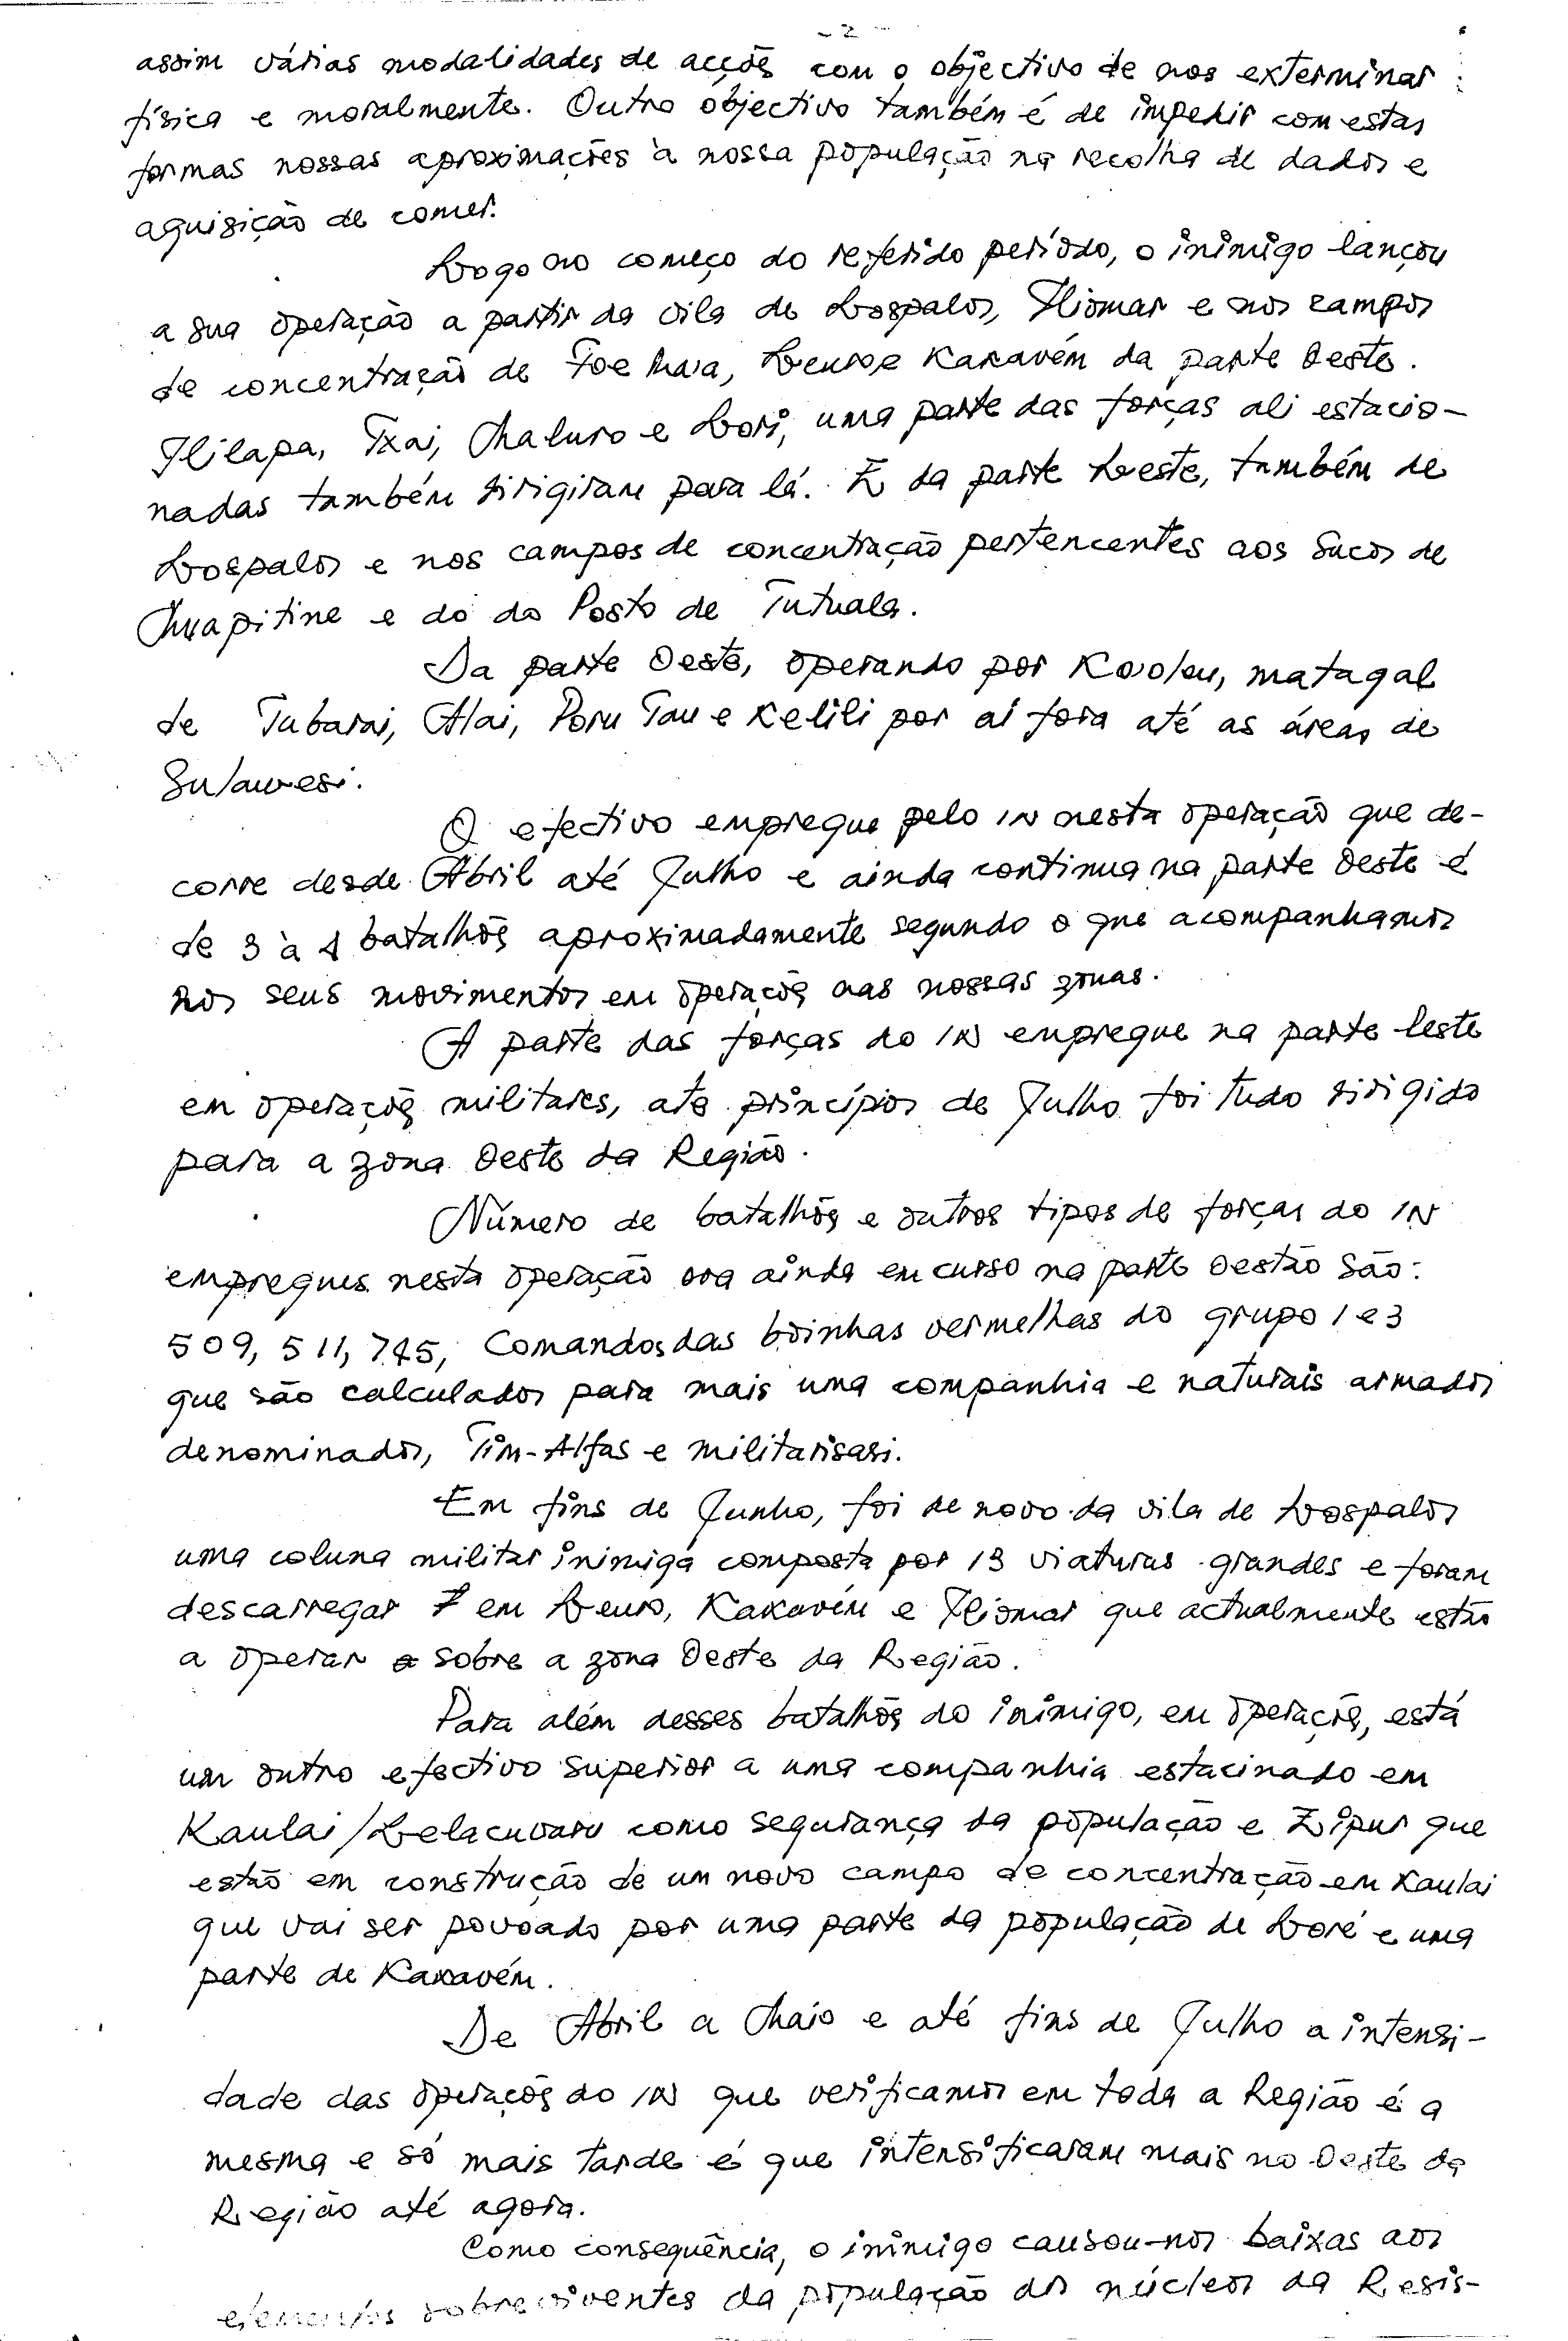 - 2 -
assim várias modalidades de acções com o objectivo de nos exterminar
física e moralmente. Outro objectivo também é de impedir com estas
formas nossas aproximações à nossa população na recolha de dados e
aquisição de comer.
Logo no começo do referido período, o inimigo lançou
a sua operação a partir da vila de Lospalos, Iliomar e nos campos
de concentração de Foe Maia, Leuro e Kakavém da parte Oeste.
Ililapa, Txai, Maluro e Lori, uma parte das forças ali estacio-
nadas também dirigiram para lá. E da parte Leste, também de
Lospalos e nos campos de concentração pertencentes aos Sucos de
Muapitine e do do Posto de Tutuala.
Da parte Oeste, operando por Kooleu, matagal
de Tubarai, Alai, Poru Tau e Kelili por aí fora até as áreas de
Sulawesi.
O efectivo empregue pelo IN nesta operação que de-
corre desde Abril até Julho e ainda continua na parte Oeste é
de 3 à 4 batalhões aproximadamente segundo o que acompanhamos
nos seus movimentos em operações nas nossas zonas.
A parte das forças do IN empregue na parte leste
em operações militares, até princípios de Julho foi tudo dirigido
para a zona Oeste da Região.
Número de batalhões e outros tipos de forças do IN
empregues nesta operação ora ainda em curso na parte Oestão são:
509, 511, 745, Comandos das boinhas vermelhas do grupo 1 e 3
que são calculados para mais uma companhia e naturais armados
denominados, Tim-Alfas e militarisasi.
Em fins de Junho, foi de novo da vila de Lospalos
uma coluna militar inimiga composta por 13 viaturas grandes e foram
descarregar 7 em Leuro, Kakavém e Iliomar que actualmente estão
a operar sobre a zona Oeste da Região.
Para além desses batalhões do inimigo, em operações, está
um outro efectivo superior a uma companhia estacinado em
Kaulai/Lelacuvaru como segurança da população e Zipur que
estão em construção de um novo campo de concentração em Kaulai
que vai ser povoado por uma parte da população de Loré e uma
parte de Kakavém.
De Abril a Maio e até fins de Julho a intensi-
dade das operações do IN que verificamos em toda a Região é a
mesma e só mais tarde é que intensificaram mais no Oeste da
Região até agora.
Como consequência, o inimigo causou-nos baixas aos
elementos sobreviventes da população dos núcleos da Resis-